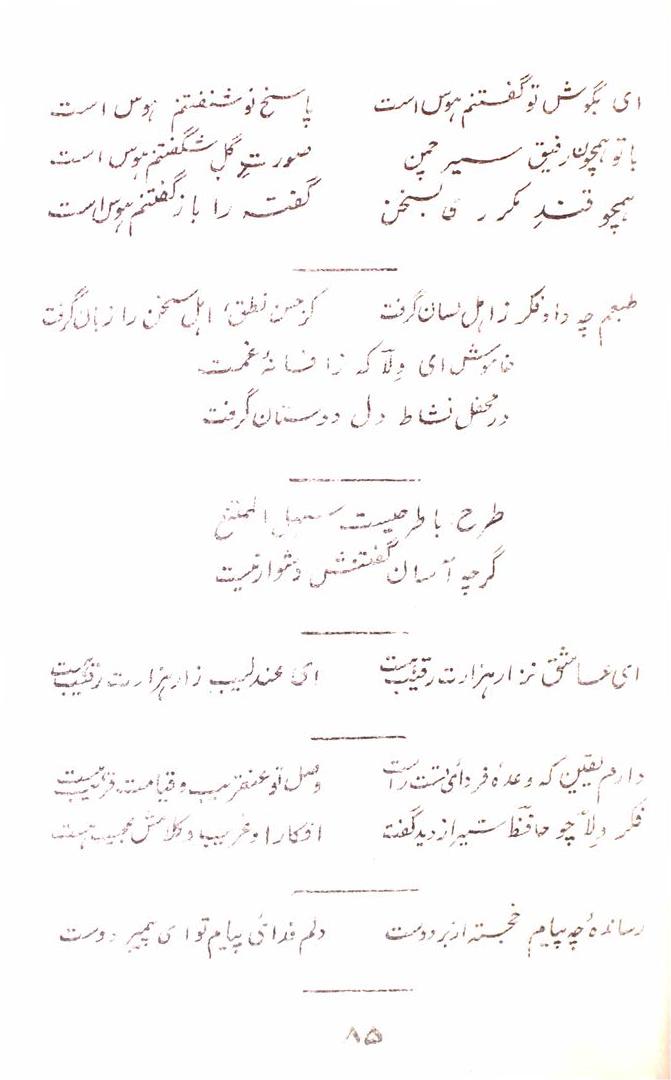 ای بگوش تو گفتنم ہوس است پاسخ نو شنفتنم ہوس است
با تو ہمچون رفیق سیر چمن صورتِ گل شگفتنم ہوس است
ہمچو قندِ مکرر ی بسخن گفتہ را باز گفتنم ہوس است
طبعم چہ داد فکر ز اہل لسان گرفت کز حسن نطق، اہل سخن را زبان گرفت
خاموش ای وِلاؔ کہ ز افسانۂ غمت
در محفل نشاط دل دوستان گرفت
طرح باطرحیست سہل الممتنع
گرچہ آسان گفتنش دشوار نیست
ای عاشق نزار ہزارت رقیب ہست ای عندلیب زار ہزارت رقیب ہست
دارم یقین کہ وعدہ فردای تست راست وصل تو عنقریب و قیامت قریب ہست
فکر وِلاؔ چو حافظؔ شیراز دید گفت افکار او غریب و کلامش عجیب ہست
رساندۂ چہ پیام خجستہ از بر دوست دلم فدائی پیام تو ای پیمبر دوست
۸۵